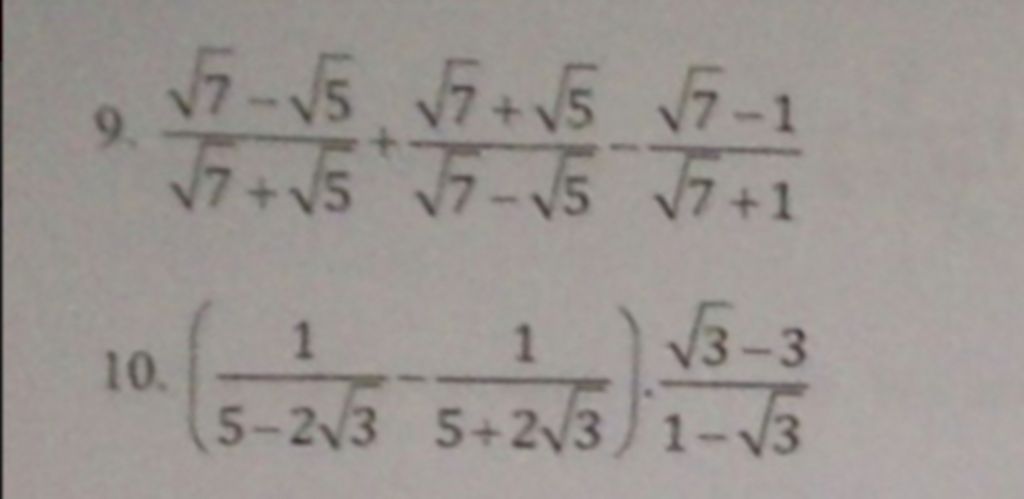 9. \frac{\sqrt{7}-\sqrt{5}}{\sqrt{7}+\sqrt{5}}+\frac{\sqrt{7}+\sqrt{5}}{\sqrt{7}-\sqrt{5}}-\frac{\sqrt{7}-1}{\sqrt{7}+1}
10. \left(\frac{1}{5-2\sqrt{3}}-\frac{1}{5+2\sqrt{3}}\right).\frac{\sqrt{3}-3}{1-\sqrt{3}}